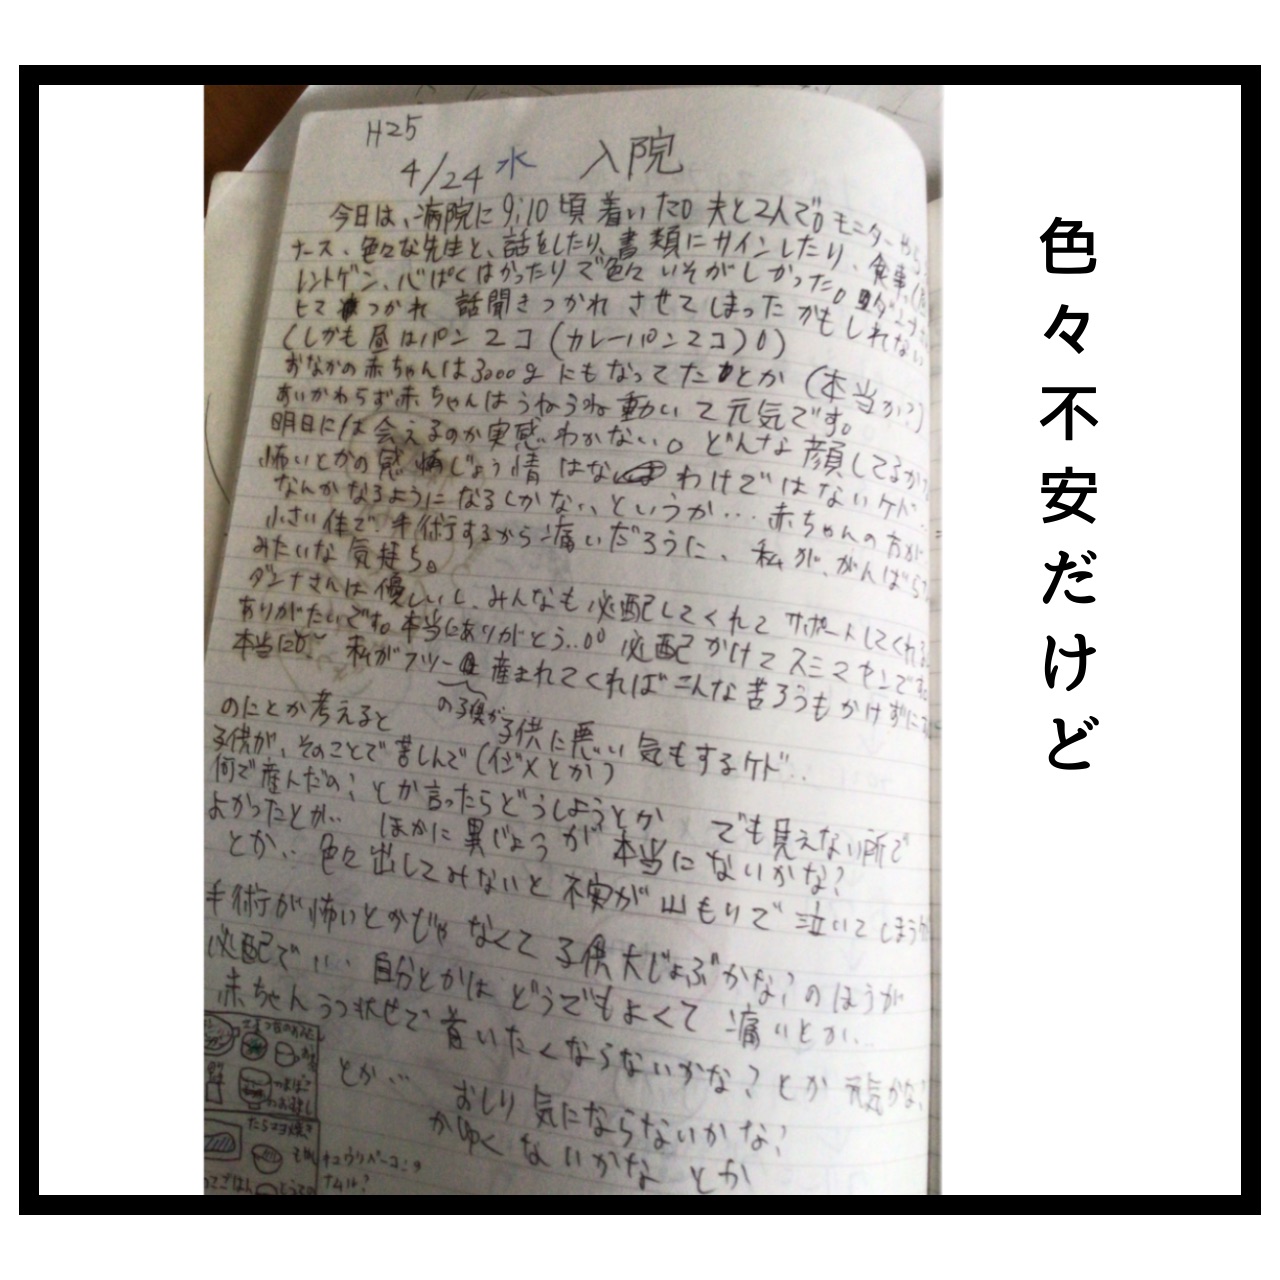 色々不安だけど
H25
4/24 水 入院
今日は、病院に9:10頃着いた。夫と2人で。モニターやら
ナース、色々な先生と、話をしたり、書類にサインしたり、食事、
レントゲン、心ぱくはかったりで色々いそがしかった。
ヒマつかれ 話聞きつかれ させてしまったかもしれない
(しかも昼はパン2コ(カレーパン2コ)。)
おなかの赤ちゃんは3000gにもなってたとか(本当か?)
あいかわらず赤ちゃんはうねうね動いて元気です。
明日には会えるのか実感わかない。どんな顔してるか?
怖いとかの感じょう情はないわけではないケド‥
なんかなるようになるしかないというか… 赤ちゃんの方が
小さい体で手術するから痛いだろうに、私が、がんばらな
みたいな気持ち。
ダンナさんは優しいし、みんなも心配してくれてサポートしてくれる。
ありがたいです。本当にありがとう‥。心配かけてスミマセンです。
本当に 私がフツー産まれてくればこんな苦ろうもかけずに
の子供が
のにとか考えると 子供に悪い気もするケド‥
子供が、そのことで苦しんで(イジメとか)
何で産んだの?とか言ったらどうしようとか でも見えない所で
よかったとか‥ ほかに異じょうが本当にないかな?
とか‥色々出してみないと不安が山もりで泣いてしまう
手術が怖いとかじゃなくて子供大じょぶかな?のほうが
心配で‥ 自分とかはどうでもよくて 痛いとか‥
赤ちゃんうつ伏せで首いたくならないかな?とか 元気かな?
とか‥ おしり気にならないかな?
かゆくないかな とか